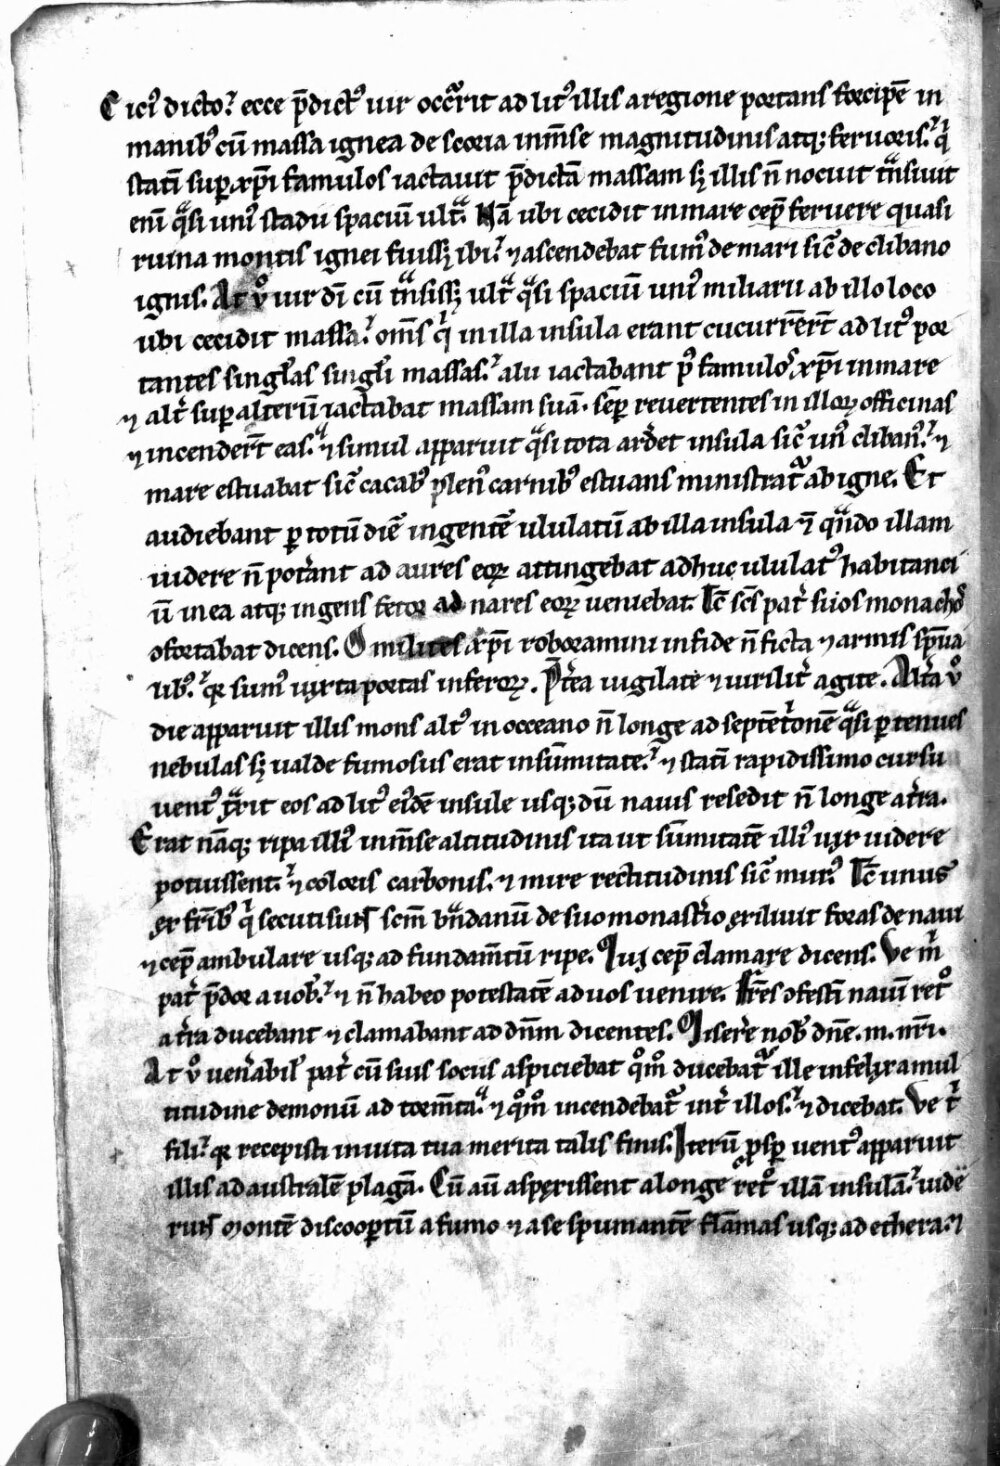 Cicꝰ dictoꝛ᷑. ecce p̄dictꝰ uir occᷓrrit ad litꝰ illis a regione portans forcipē in
manibꝰ cū massa ignea de scoria inm̄se magnitudinis atq; feruoris. qⁱ
statī suꝑ xp̄i famulos iactauit p̄dictā massam sꝫ illis n̄ nocuit tᷓnsiuit
enī qᷓsi unıꝰ stadii spaciū ultᷓ. Nā ubi cecidit in mare cep̄ feruere quasi
ruina montis ignei fuissꝫ ibi. ⁊ ascendebat fumꝰ de mari sic̄ de clibano
ignis. At ů uir dī cū tᷓnsissꝫ ultᷓ qᷓsi spaciū unıꝰ miliarii ab illo loco
ubi cecidit massa. om̄s qⁱ in illa insula erant cucurrer̄t ad litꝰ por
tantes singl̄as singl̄i massas. alii iactabant p̱ꝰ famulos xp̄i in mare
⁊ alt̓ suꝑ alterū iactabat massam suā. semꝑ reuertentes in illoꝝ officinas
⁊ incender̄t eas. ⁊ simul apparuit qᷓsi tota ard̓et insula sic̄ unꝰ clibanꝰ. ⁊
mare estuabat sic̄ cacabꝰ plenꝰ carnibꝰ estuans ministratᷓ ab igne. Et
audiebant ꝑ totū diē ingentē ululatū ab illa insula ⁊ qᷓndo illam
uidere n̄ pot̓ant ad aures eoꝝ attingebat adhuc ululatꝰ habitanci
ū in ea atq; ingens fetor ad nares eoꝝ ueniebat. Tc̄ sc̄s pat̓ suos monachos
ꝯfortabat dicens. O milites xp̄i roboramini in fide n̄ ficta ⁊ armis sp̄ua
libꝰ. qꝛ sumꝰ iuxta portas inferoꝝ. Pt̓ea uigilate ⁊ uirilit̓ agite. Alt̓a ů
die apparuit illis mons altꝰ in occeano n̄ longe ad septēt̓onē qᷓsi ꝑ tenues
nebulas sꝫ ualde fumosus erat in sūmitate. ⁊ statī rapidissimo cursu
uentꝰ tᷓxit eos ad litꝰ eidē insule usq; dū nauis resedit n̄ longe a t̓ra.
Erat nāq; ripa illıꝰ inm̄se altitudinis ita ut sūmitatē illıꝰ uix uidere
potuissent. ⁊ coloris carbonis. ⁊ mire rectitudinis sic̄ murꝰ. Tc̄ unus
ex fr̄ibꝰ qⁱ secuti sunt scm̄ bᷓndanū de suo monast̓io exiliuit foras de naui
⁊ cep̄ ambulare usq; ad fundam̄tū ripe. Qui cep̄ clamare dicens. Ve mⁱ
pat̓ p̄dor a uobꝰ. ⁊ n̄ habeo potestatē ad uos uenire. Fr̄es ꝯfestī nauī retͦ
a t̓ra ducebant ⁊ clamabant ad dn̄m dicentes. Miser̓e nobꝰ dn̄e. m. nr̄i.
At ů uen̓abil̓ pat̓ cū suis sociis aspiciebat qͦmͦ ducebatᷓ ille infelix a mul
titudine demonū ad torm̄ta. ⁊ qͦmͦ incendebatᷓ int̓ illos. ⁊ dicebat. Ve tⁱ
fili. qꝛ recepisti in uita tua merita talis finis. Iterū ꝓsꝑ uentꝰ apparuit
illis ad australē plagā. Cū aū aspexissent a longe retͦ illā insulā. uide
runt montē discoopertū a fumo ⁊ a se spumantē flāmas usq; ad ethera. ⁊